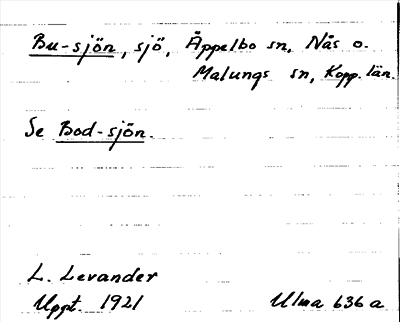 Bu-sjön, sjö, Äppelbo sn, Nås o.
Malungs sn, Kopp. län.
Se Bod-sjön.
L. Levander
Uppt. 1921 Ulma 636 a